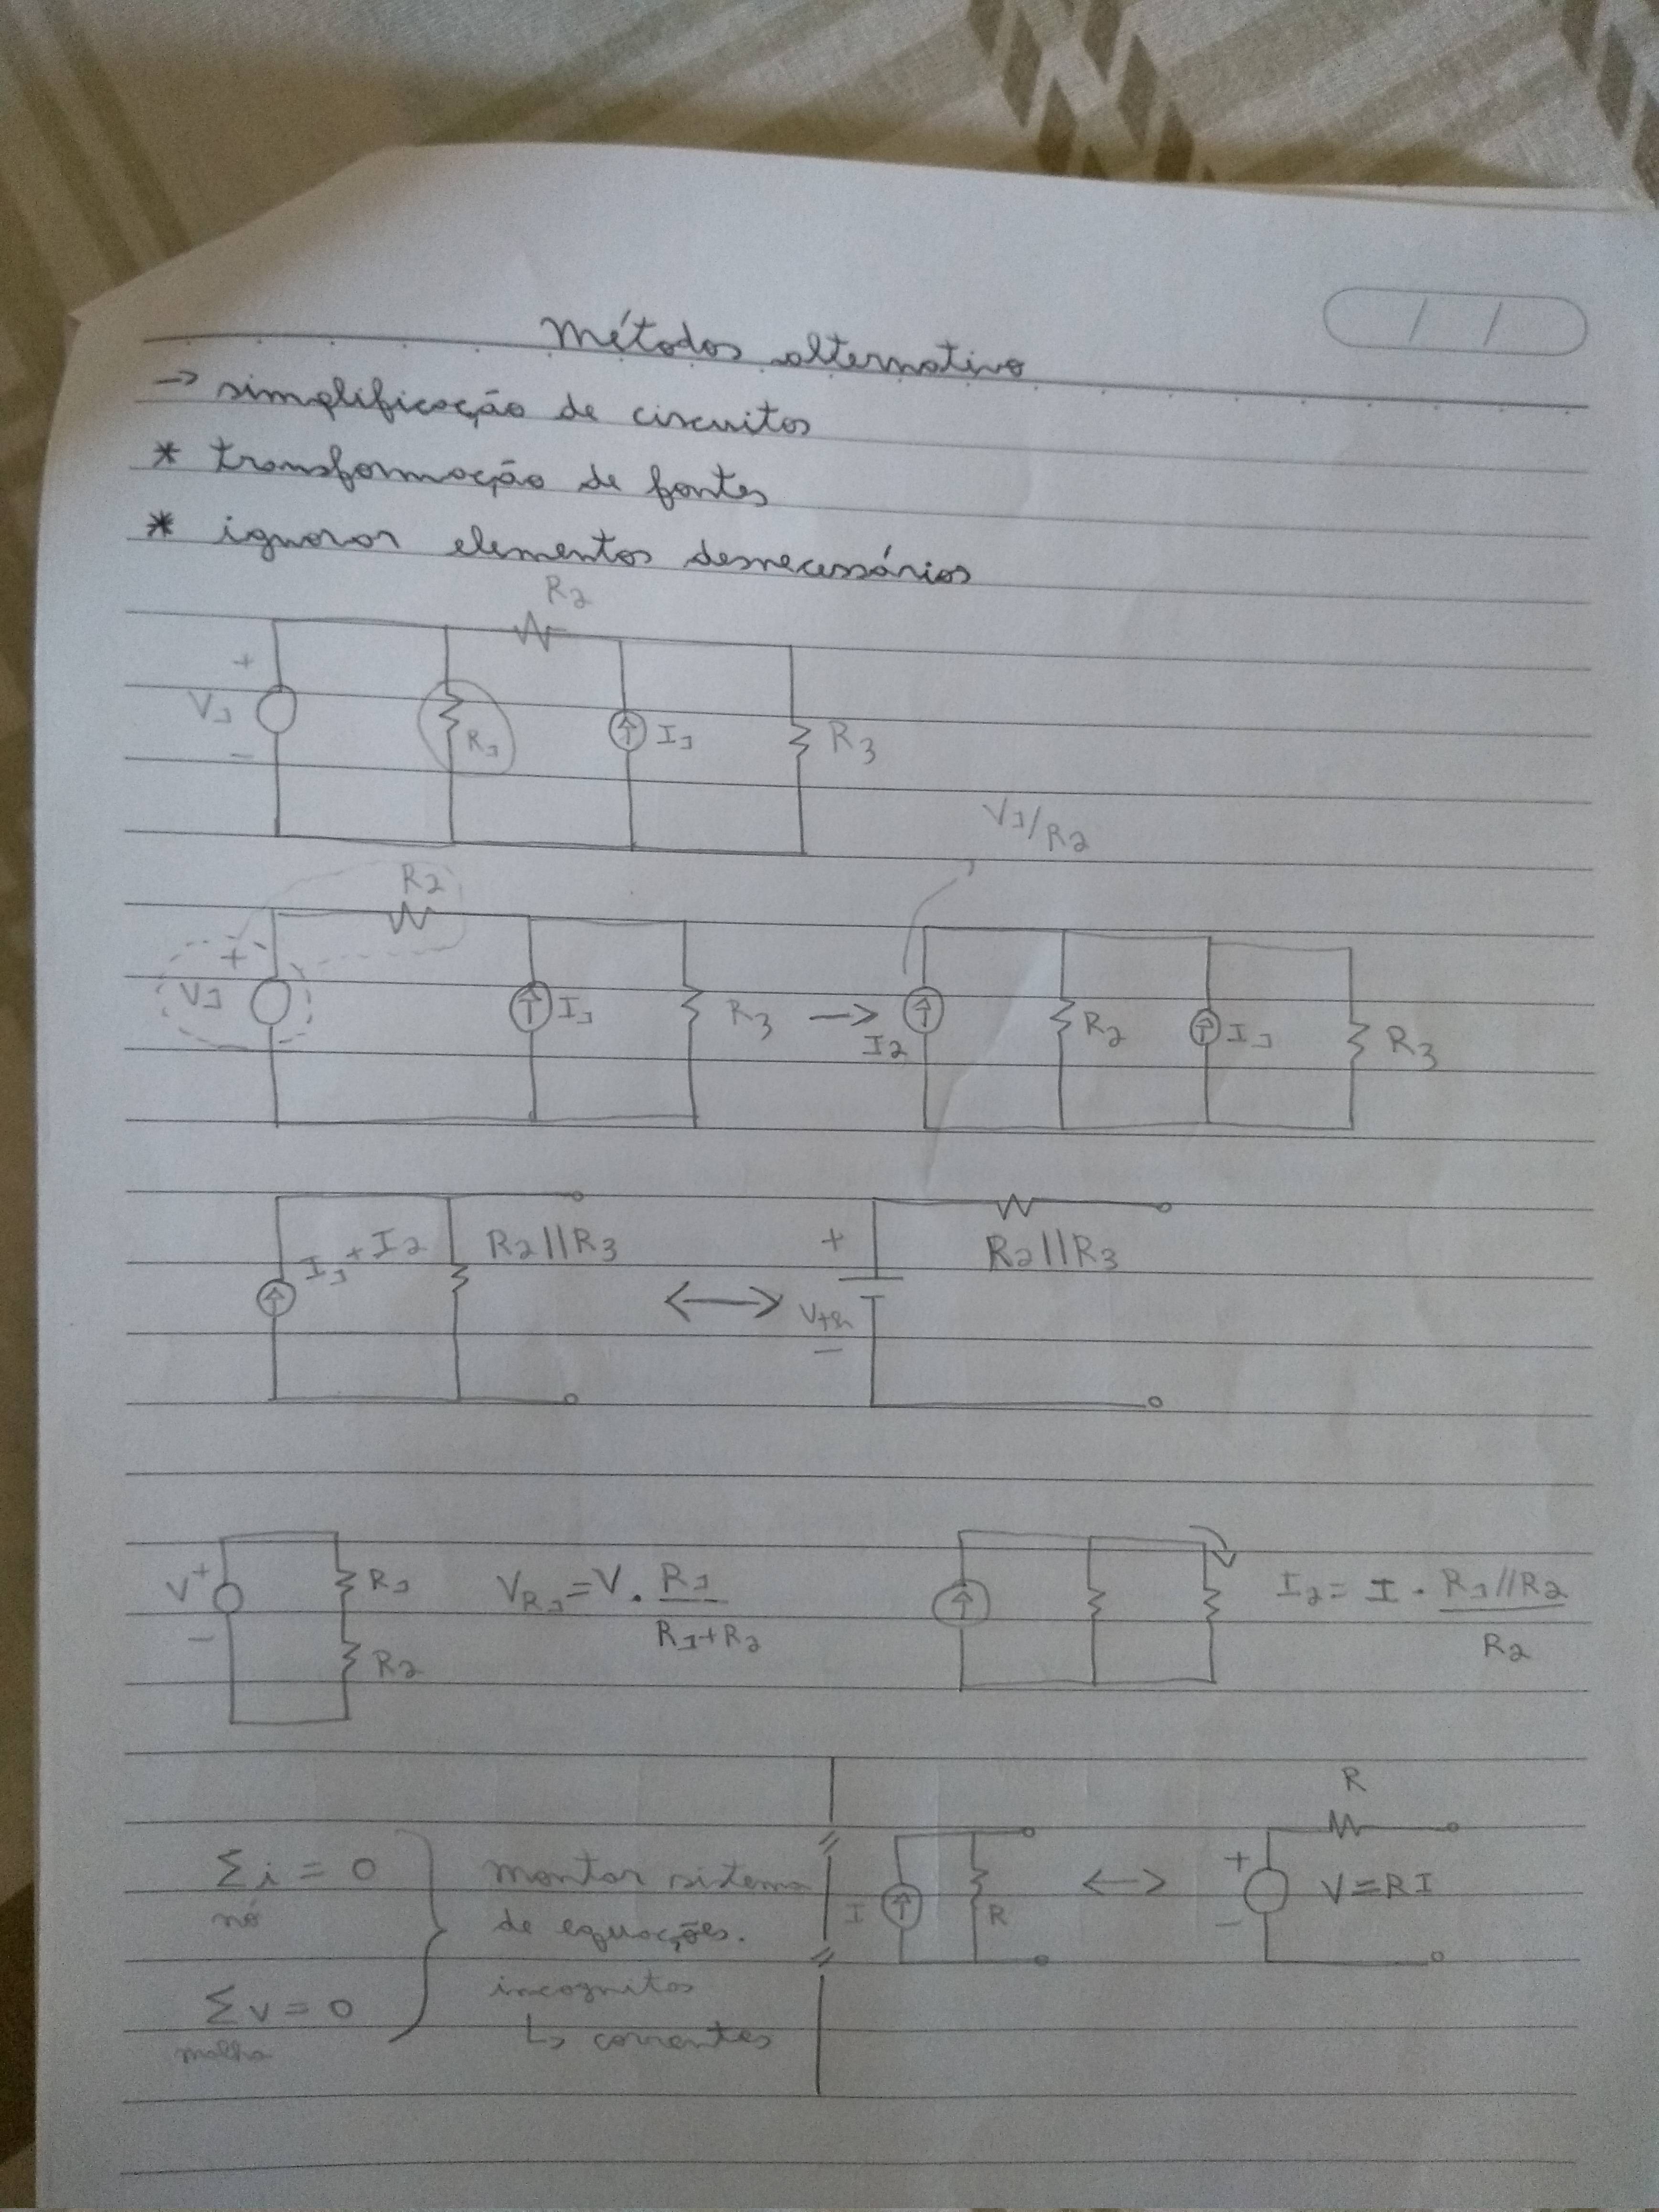 Métodos alternativo
→ simplificação de circuitos
* transformação de fontes
* ignorar elementos desnecessários
R2
+
V1
R1
I1
R3
-
V1/R2
R2
+
V1
I1
R3
→
I2
R2
I1
R3
I1+I2
R2//R3
↔
+
Vth
-
R2//R3
V+
-
R1
R2
VR1 = V . R1
R1+R2
I2 = I . R1//R2
R2
Σi = 0
nó
Σv = 0
malha
montar sistema
de equações.
incognitas
↳ correntes
I
R
↔
R
+
V=RI
-